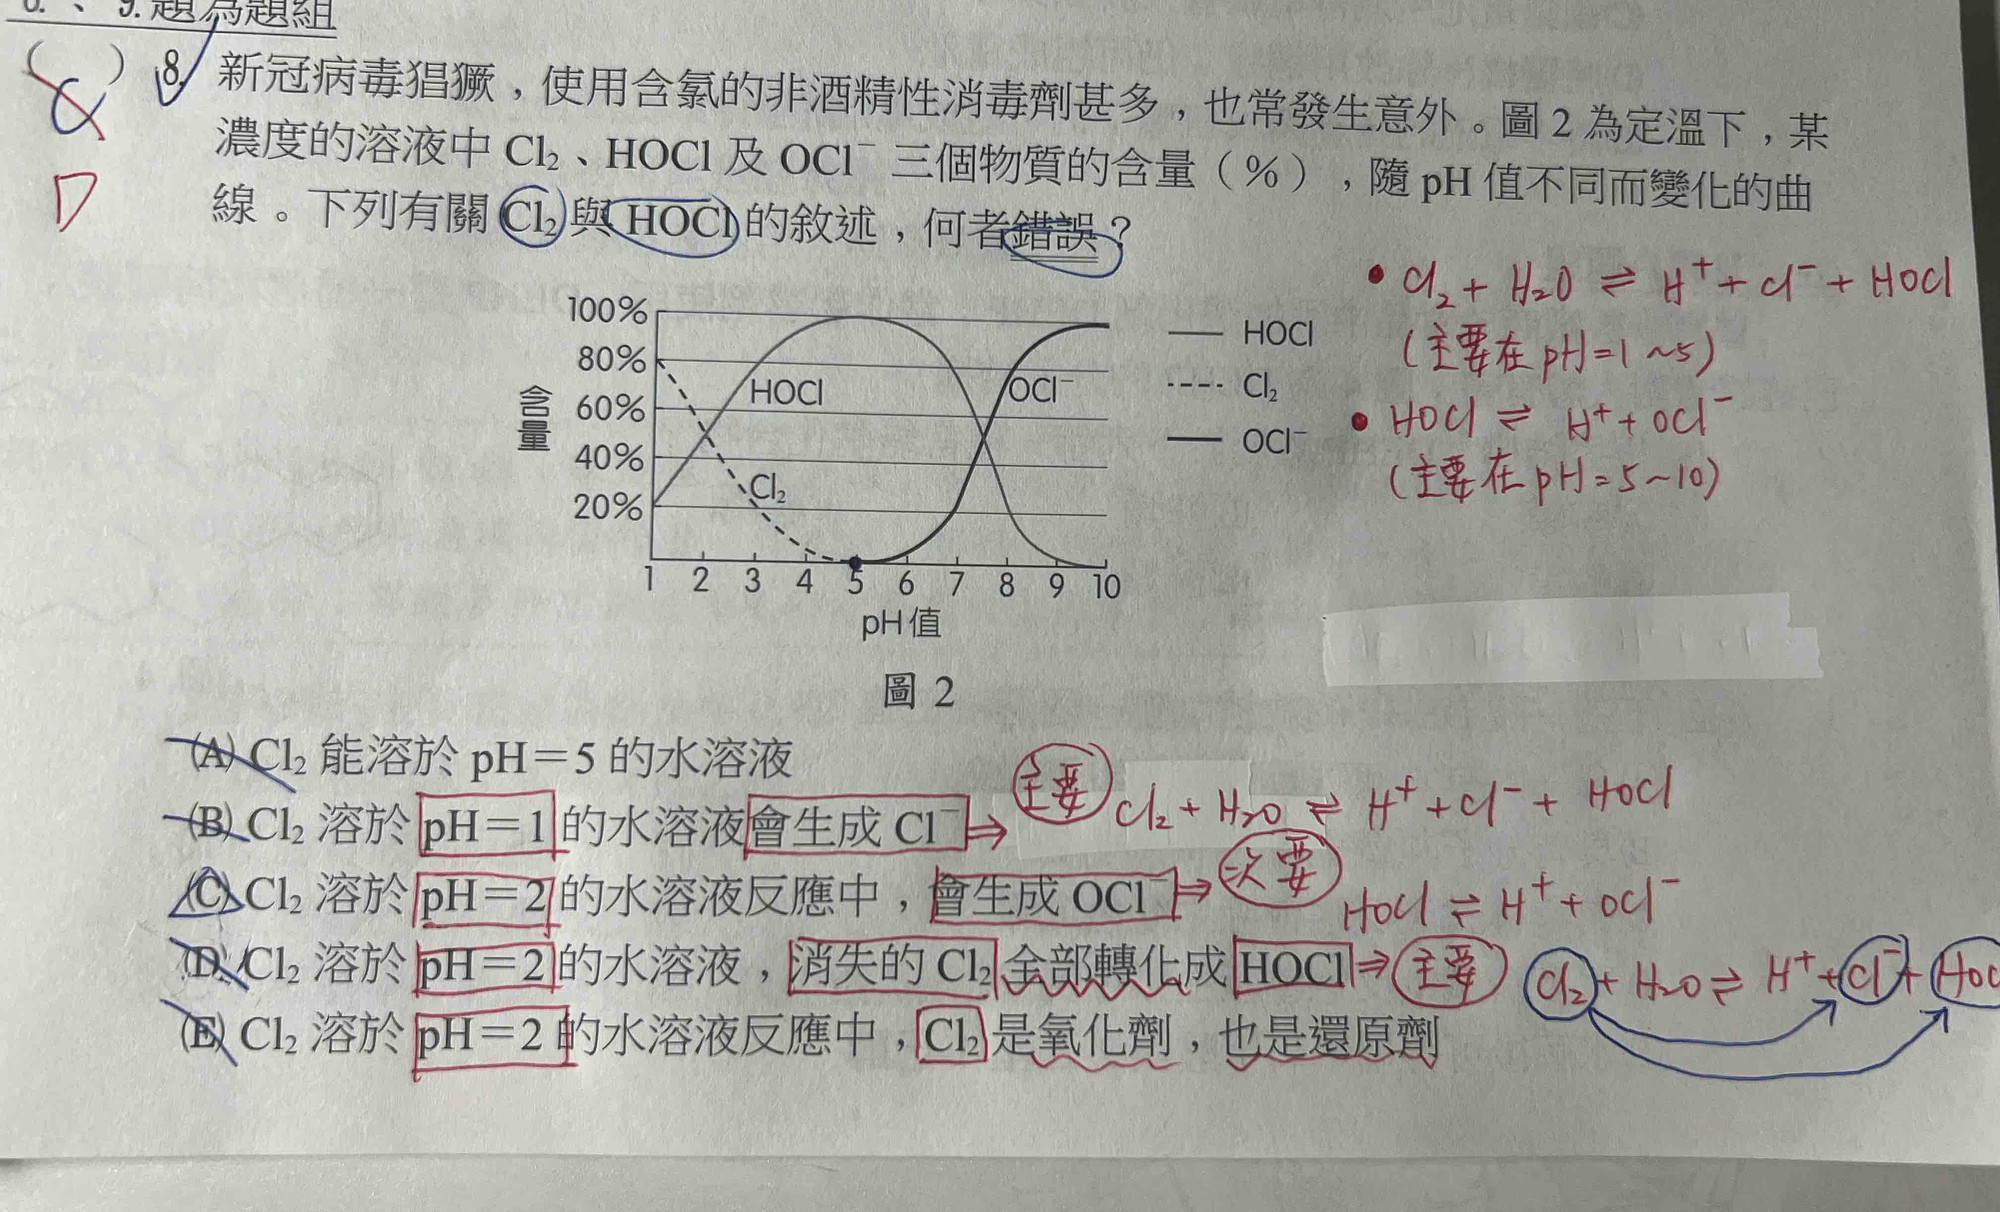 8.、9.題為題組
( ) 8. 新冠病毒猖獗，使用含氯的非酒精性消毒劑甚多，也常發生意外。圖 2 為定溫下，某
C
濃度的溶液中 Cl₂、HOCl 及 OCl⁻ 三個物質的含量（%），隨 pH 值不同而變化的曲
D
線。下列有關 Cl₂ 與 HOCl 的敘述，何者錯誤？
• Cl₂ + H₂O ⇌ H⁺ + Cl⁻ + HOCl
(主要在 pH=1~5)
• HOCl ⇌ H⁺ + OCl⁻
(主要在 pH=5~10)
100%
80%
60%
40%
20%
含量
HOCl
Cl₂
OCl⁻
HOCl
Cl₂
OCl⁻
1 2 3 4 5 6 7 8 9 10
pH 值
圖 2
(A) Cl₂ 能溶於 pH＝5 的水溶液
(B) Cl₂ 溶於 pH＝1 的水溶液會生成 Cl⁻ ⇒ 主要 Cl₂ + H₂O ⇌ H⁺ + Cl⁻ + HOCl
(C) Cl₂ 溶於 pH＝2 的水溶液反應中，會生成 OCl⁻ ⇒ 次要 HOCl ⇌ H⁺ + OCl⁻
(D) Cl₂ 溶於 pH＝2 的水溶液，消失的 Cl₂ 全部轉化成 HOCl ⇒ 主要 Cl₂ + H₂O ⇌ H⁺ + Cl⁻ + HOC
(E) Cl₂ 溶於 pH＝2 的水溶液反應中，Cl₂ 是氧化劑，也是還原劑